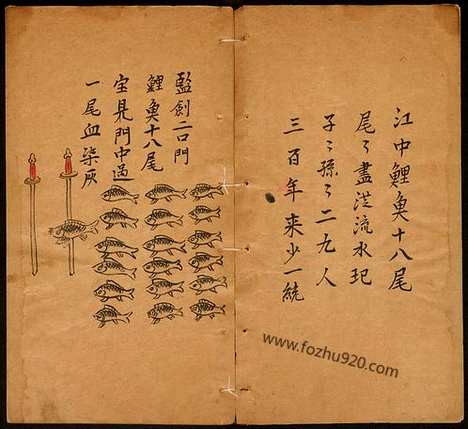 江中鯉魚十八尾
尾々盡洪流水
子々孫々二九人
三百年来少一統
監劍二口門
鯉魚十八尾
宝見門中過
一尾血染灰
www.fozhu920.com